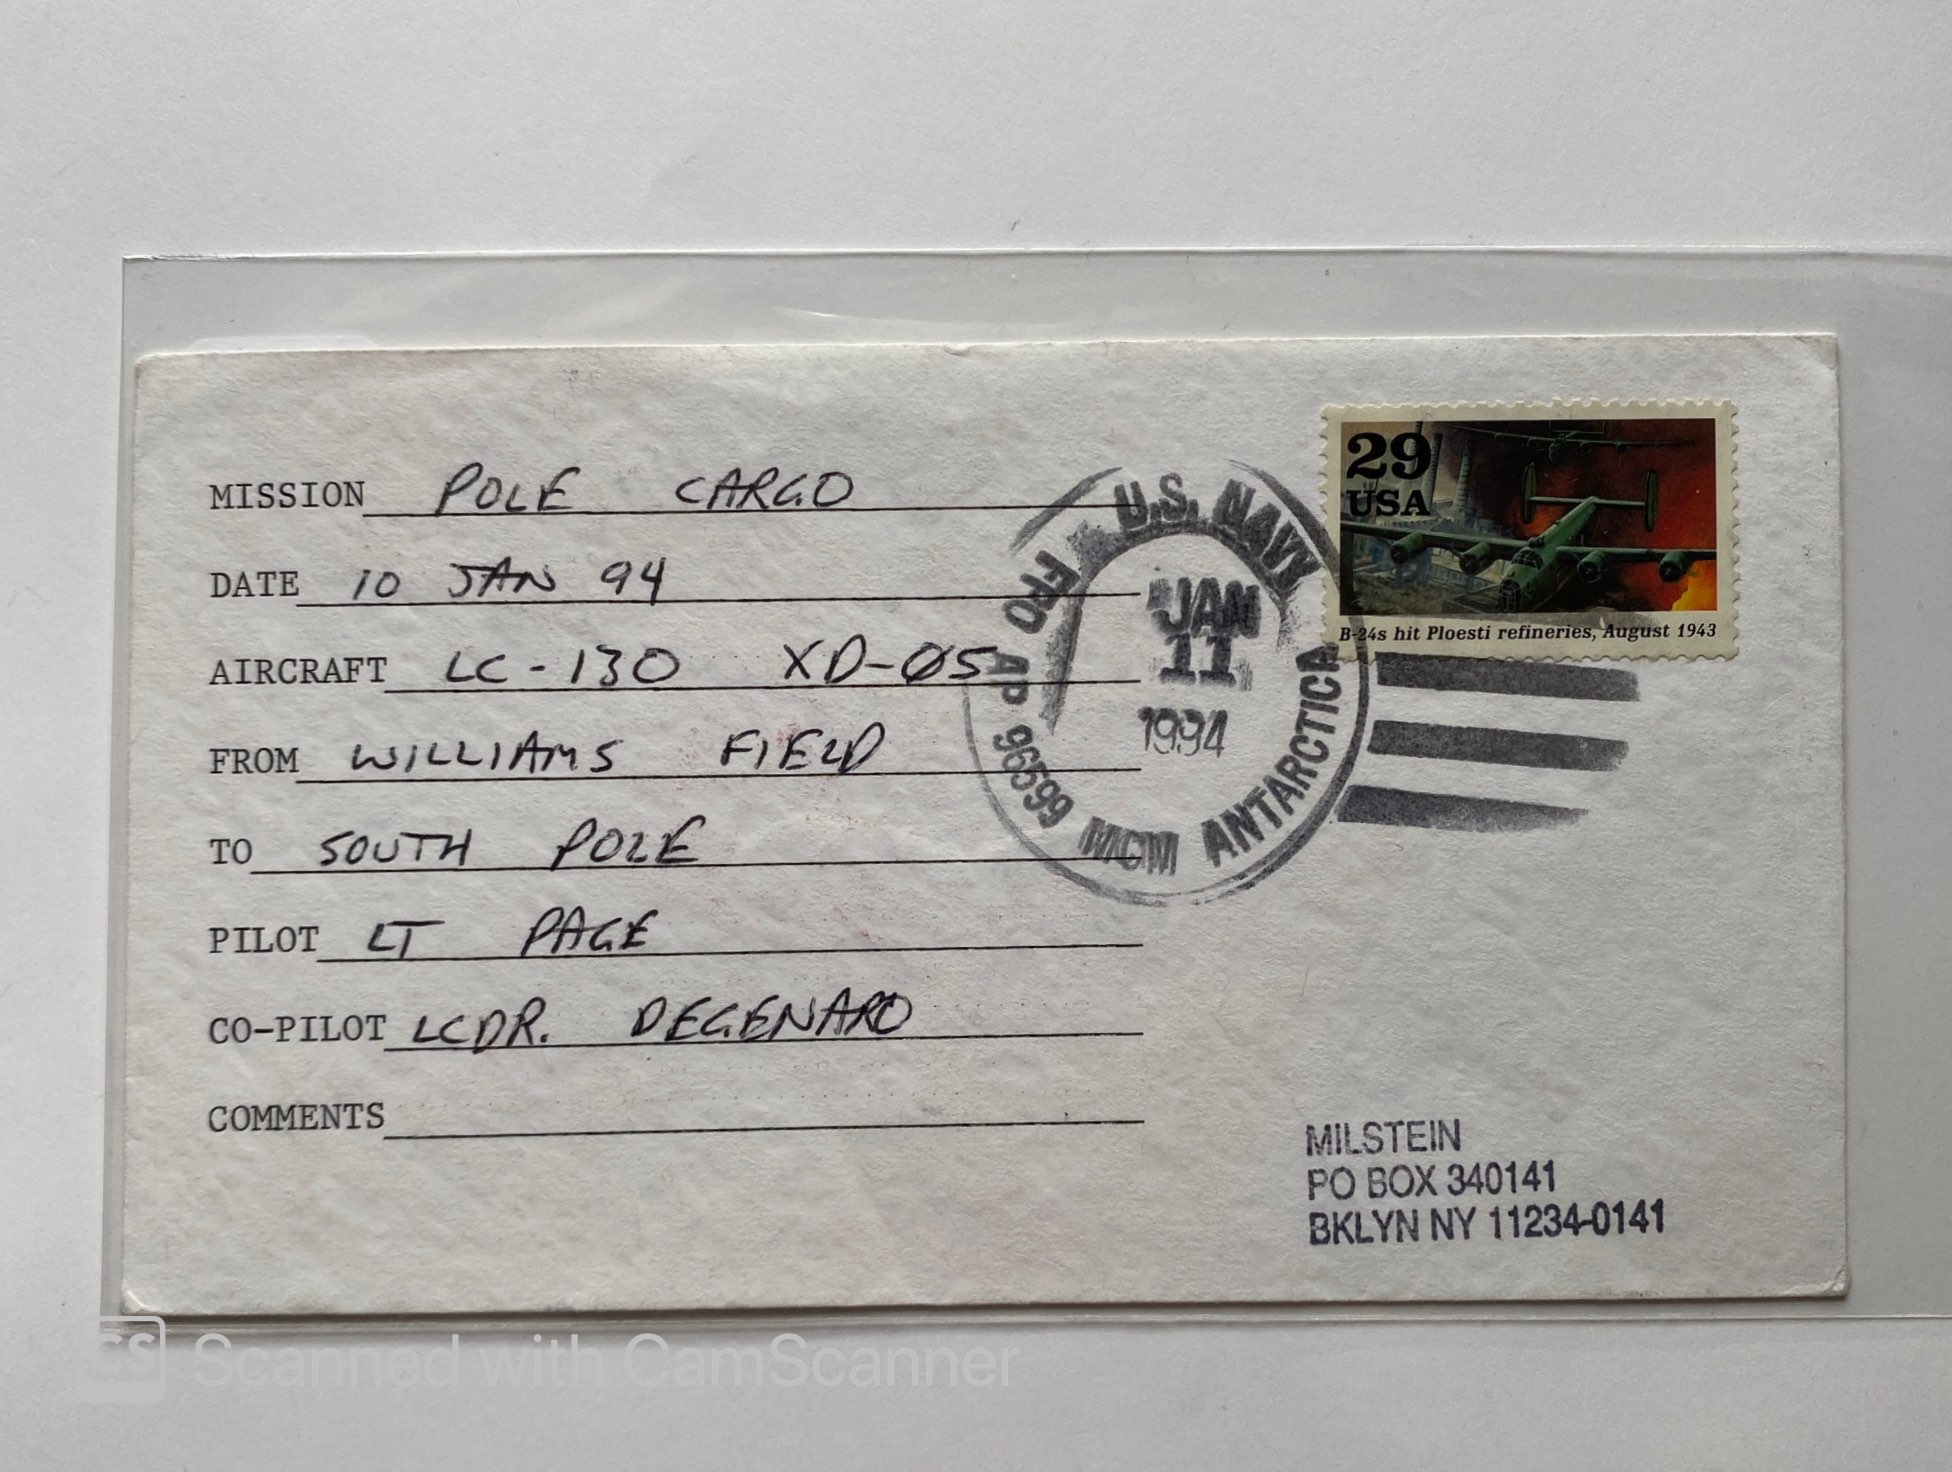 MISSION POLE CARGO
DATE 10 JAN 94
AIRCRAFT LC-130 XD-Ø5
FROM WILLIAMS FIELD
TO SOUTH POLE
PILOT LT PAGE
CO-PILOT LCDR. DEGENARO
COMMENTS
U.S. NAVY
JAN
11
1994
FPO AP 96599 MCM ANTARCTICA
29
USA
B-24s hit Ploesti refineries, August 1943
MILSTEIN
PO BOX 340141
BKLYN NY 11234-0141
CS Scanned with CamScanner